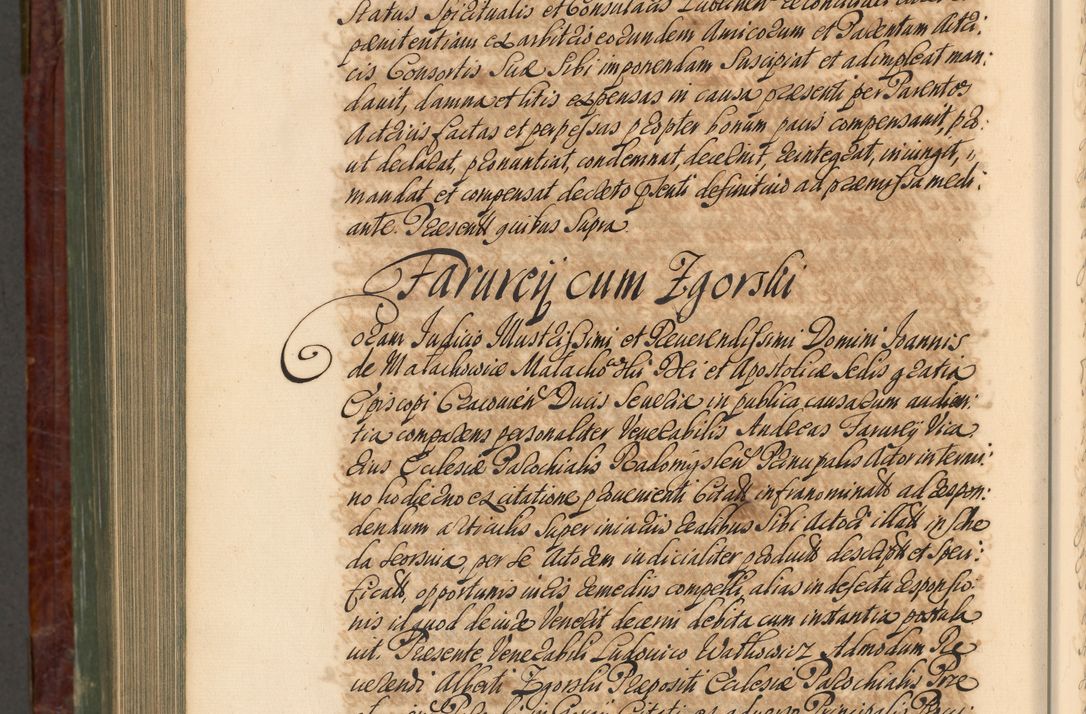 Status Spiritualis et Consulatus Lublinen
pœnitentiam ex arbitrio eorundem Amicorum et Parentum Actri:
cis Consortis Suæ Sibi imponendam Suscipiat et adimpleat man:
davit, damna et litis expensas in causa præsenti per Parentes
Actricis factas et perpessas propter bonum pacis compensavit, pro:
ut declarat, pronuntiat, condemnat, decernit, reintegrat, iniungit,
mandat et compensat decreto pñti definitivo ad præmissa medi:
ante. Præsentt quibus Supra
Tarurcij cum Zgorski
Coram Judicio Illustrissimi et Reverendissimi Domini Joannis
de Małachowice Małachowski Dei et Apostolicæ Sedis gratia
Episcopi Cracovien Ducis Severiæ in publica causarum audien:
tia comparens personaliter Venerabilis Andreas Tarurcij Vica
rius Ecclesiæ Parochialis Radomyslen Principalis Actor in termi:
no hodierno ex citatione provenienti Citatt infranominatt ad respon:
dendum articulis Super iniuriis realibus Sibi Actori illatt in Sche
da Seorsiva, per Se Actorem iudicialiter product descript et Speci:
ficatt, opportunis iuris remediis compelli, alias in defectu responsio:
nis id quod de iure Venerit decerni debita cum instantia postula
vit. Præsente Venerabili Ludovico Watkowicz Admodum Re
verendi Alberti Zgorski Præpositi Ecclesiæ Parochialis Præ